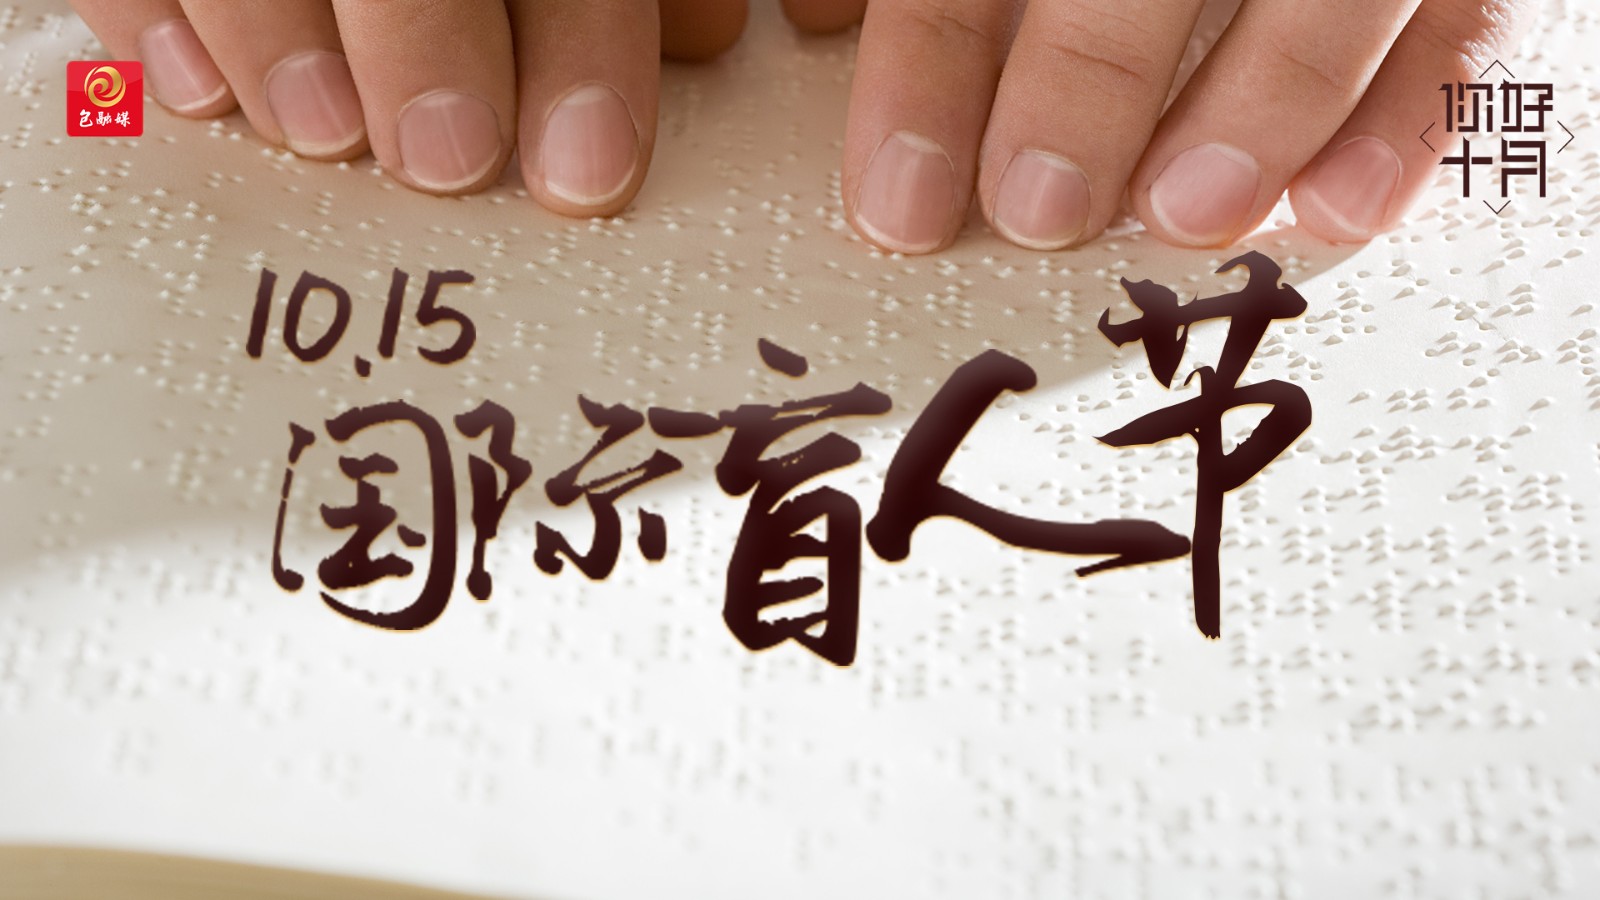 包融媒
你好
十月
10.15
国际盲人节